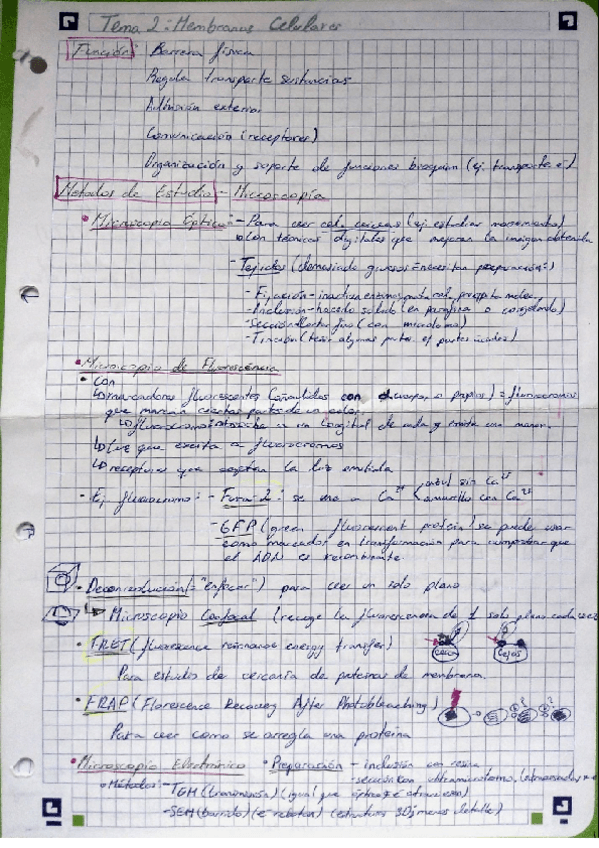 Tema 2: Membranas Celulares
Función: Barrera física
Regula transporte sustancias
Adhesión externa
Comunicación (receptores)
Organización y soporte de funciones bioquim (ej. transporte e-)
Métodos de Estudio - Microscopía
Microscopio Óptico: - Para ver (ej estudiar movimiento)
con técnicas digitales que mejoran la imagen obtenida
- Tejidos (demasiado gruesos = necesitan preparación:)
- Fijación - inactiva enzimas
- Inclusión - hacerlo sólido (en parafina o congelando)
- Sección = cortar fino (con microtomo)
- Tinción (teñir algunas partes
Microscopio de Fluorescencia
• Con
marcadores fluorescentes (añadidos o propios) = fluorocromos
que marcan ciertas partes de un color.
fluorocromo a una longitud de onda y emite una menor.
Luz que excita a fluorocromos
receptores que captan la luz emitida
- Ej fluorocromo: - Fura-2: se une a Ca²⁺ azul sin Ca²⁺
amarillo con Ca²⁺
- GFP (green protein) se puede usar
como marcador en transformación para comprobar que
el ADN es recombinante
- Deconvolución (= "enfocar") para ver un solo plano
Microscopio Confocal (recoge la fluorescencia de 1 solo plano cada vez
• FRET (fluorescence resonance energy transfer)
cerca lejos
Para estudios de cercanía de proteínas de membrana.
• FRAP (Florescence Recovery After Photobleaching)
Para ver como se arregla una proteína
• Microscopio Electrónico • Preparación - inclusión con resina
- sección con ultramicrotomo
• Métodos: - TEM (transmisión) (igual que óptico e- atraviesan)
- SEM (barrido) (e- rebotan) (estructura 3D; menos detalle)